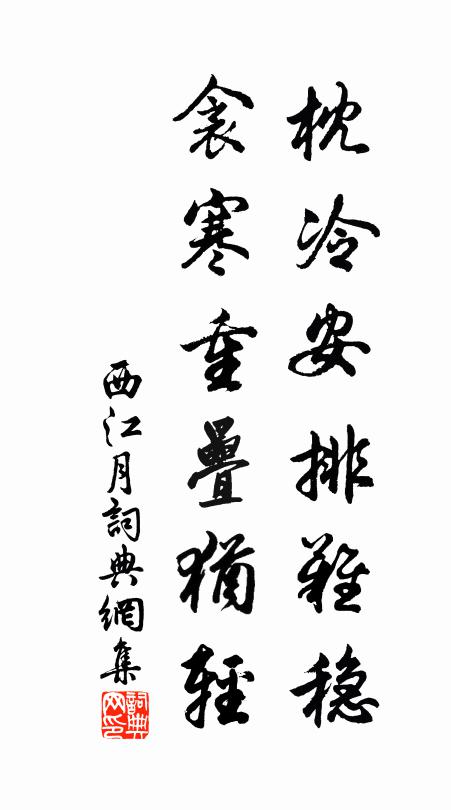 枕冷安排難穩
衾寒重疊猶輕
西江月詞典網集
詞典网印